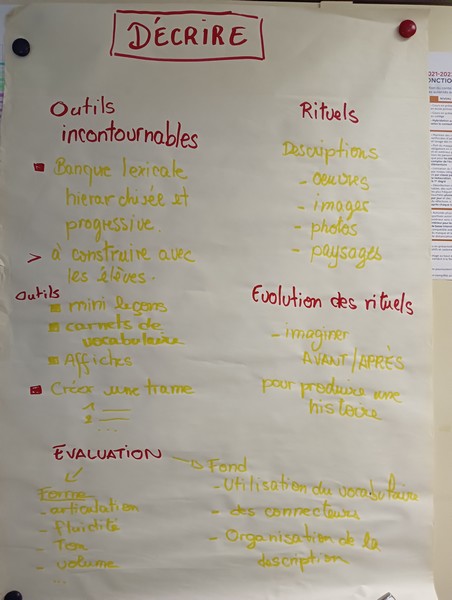 DÉCRIRE
Outils
incontournables
Banque lexicale
hierarchisée et
progressive.
> à construire avec
les élèves.
Outils
mini leçons
carnets de
vocabulaire
Affiches
Créer une trame
1
2
...
Rituels
Descriptions
- oeuvres
- images
- photos
- paysages
Evolution des rituels
- imaginer
AVANT/APRÈS
pour produire une
histoire
EVALUATION
Forme
- articulation
- fluidité
- Ton
- volume
...
Fond
- Utilisation du vocabulaire
- des connecteurs
- Organisation de la
description
2021-2022